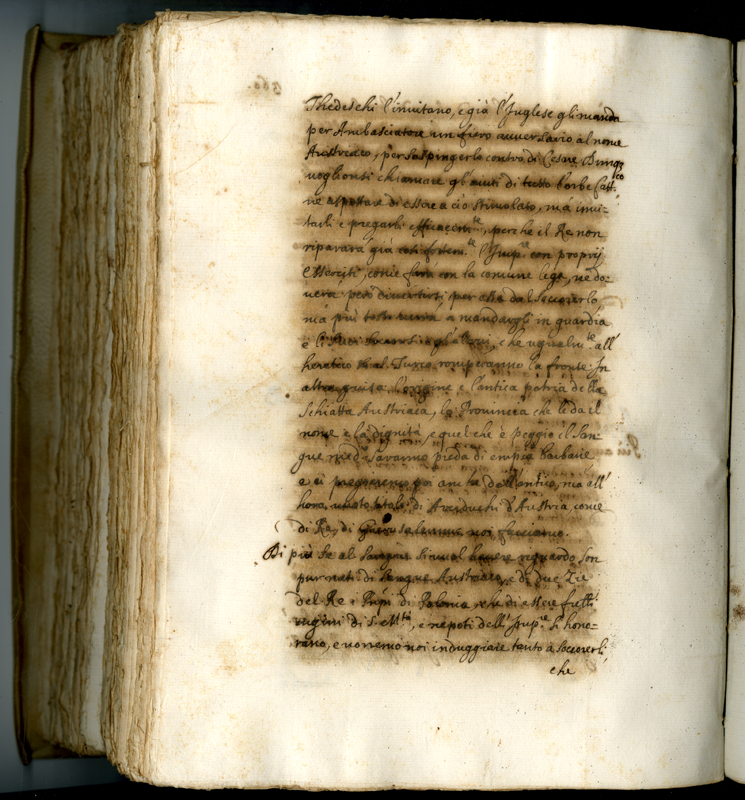 Thedeschi l'inuitano, e già l'Inglese gli manda
per Ambasciatore un fiero auuersario al nome
Austriaco, per sospingerlo contro di Cesare Dunq;
uoglionsi chiamare gl'aiuti di tutto l'orbe Catt.co
ne aspettare di essere a ciò stimolato, mà inui-
tarli e pregarli efficacem.te, perche il Re non
ripararà già così fortem.te l'Imp.re con proprij
esserciti, come farà con la comune lega, ne do-
uerà però diuertirsi per esse dal soccorerlo
mà più tosto a mandargli in guardia
e li che ugualm.te all'
heretico et al Turco romperanno la fronte. In
altra guisa l'origine e l'antica patria della
Schiatta Austriaca, la Prouincia che le dà il
nome e la dignità, e quel che è peggio il San-
gue saranno preda di empia barbarie
e ci pregiaremo poi anche dell'antico, mà all'
hora uuoto titolo di Arciduchi d'Austria, come
di Re di Gierusalemme noi facciamo.
Di più se al Sangue si uuol hauere riguardo son
pur nati di Sangue Austriaco, e di due Zie
del Re i Prñpi di Polonia, che di essere fratelli
cugini di S. M.tà, e nepoti dell'Imp.re si hono-
rano, e uorremo noi induggiare tanto à soccorerli
che